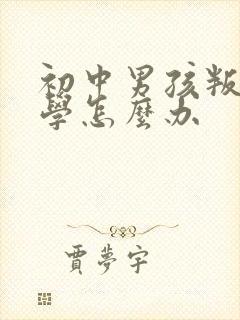 初中男孩叛
學怎麼办
賈夢宇